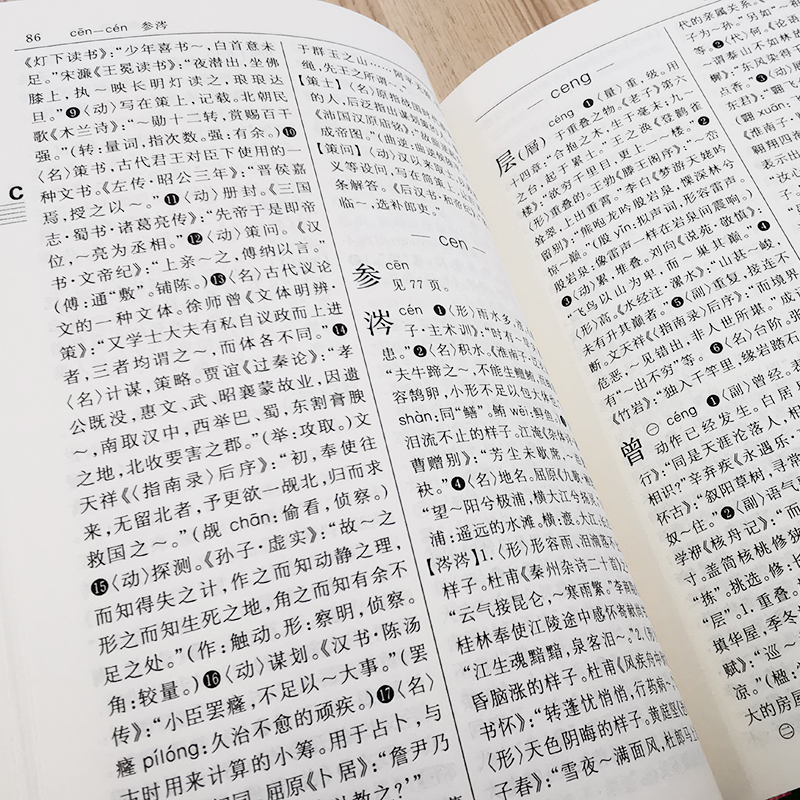 86 cēn—cén 参涔
《灯下读书》:“少年喜书～,白首意未
足。”宋濂《王冕读书》:“夜潜出,坐佛
膝上,执～映长明灯读之,琅琅达
旦。”❾〈动〉写在策上,记载。北朝民
歌《木兰诗》:“～勋十二转,赏赐百千
强。”(转:量词,指次数。强:有余。)❿
〈名〉策书,古代君王对臣下使用的一
种文书。《左传·昭公三年》:“晋侯嘉
焉,授之以～。”⓫〈动〉册封。《三国
志·蜀书·诸葛亮传》:“先帝于是即帝
位,～亮为丞相。”⓬〈动〉策问。《汉
书·文帝纪》:“上亲～之,傅纳以言。”
(傅:通“敷”。铺陈。)⓭〈名〉古代议论
文的一种文体。徐师曾《文体明辨·
策》:“又学士大夫有私自议政而上进
者,三者均谓之～,而体各不同。”⓮
〈名〉计谋,策略。贾谊《过秦论》:“孝
公既没,惠文、武、昭襄蒙故业,因遗
～,南取汉中,西举巴、蜀,东割膏腴
之地,北收要害之郡。”(举:攻取。)文
天祥《〈指南录〉后序》:“初,奉使往
来,无留北者,予更欲一觇北,归而求
救国之～。”(觇 chān:偷看,侦察。)
⓯〈动〉探测。《孙子·虚实》:“故～之
而知得失之计,作之而知动静之理,
形之而知生死之地,角之而知有余不
足之处。”(作:触动。形:察明,侦察。
角:较量。)⓰〈动〉谋划。《汉书·陈汤
传》:“小臣罢癃,不足以～大事。”(罢
癃 pílóng:久治不愈的顽疾。)⓱〈名〉
古时用来计算的小筹。用于占卜,与
同。屈原《卜居》:“詹尹乃
C
于群玉之山……
绳,先王之所谓
【策士】〈名〉原指战国时
的人,后泛指出谋划策
《沛国汉原庙铭》:
成帝图。”(曲逆:曲逆侯
【策问】〈动〉汉以来取
义等设问,写在简策上,
条解答。《后汉书·和帝纪》
临～,选补郎吏。”
cen
参 cēn
见77页。
涔 cén ❶〈形〉雨水多,
子·主术训》:“时有
患。”❷〈名〉积水。《淮南子·
“夫牛蹄之～,不能生
容鹄卵,小形不足以包大体
shàn:同“鳝”。鲔 wěi:鲟鱼。
泪流不止的样子。江淹《杂体
曹赠别》:“芳尘未歇席,
袂。”❹〈名〉地名。屈原《九歌·
“望～阳兮极浦,横大江兮
浦:遥远的水滩。横:渡。大江
【涔涔】1.〈形〉形容雨、泪滴落不
样子。杜甫《秦州杂诗二十首》之
“云气接昆仑,～寒雨繁。”李商隐
桂林奉使江陵途中感怀寄献尚
“江生魂黯黯,泉客泪～。”2.〈形〉
昏脑涨的样子。杜甫《风疾舟中
书怀》:“转蓬忧悄悄,行药病～
〈形〉天色阴晦的样子。黄庭坚
子春》:“雪夜～满面风,杜郎马上
ceng
层(層) céng ❶〈量〉重,级。用
于重叠之物。《老子》第六
十四章:“合抱之木,生于毫末;九～
之台,起于累土。”王之涣《登鹳雀
楼》:“欲穷千里目,更上一～楼。”❷
〈形〉重叠的。王勃《滕王阁序》:“～峦
耸翠,上出重霄。”李白《梦游天姥吟
留别》:“熊咆龙吟殷岩泉,慄深林兮
惊～巅。”(殷 yǐn:拟声词,形容雷声。
殷岩泉:像雷声一样在岩泉间震响。)
❸〈动〉累,叠。刘向《说苑·敬慎》:
“飞鸟以山为卑,而～巢其巅。”❹
〈形〉高。《水经注·漯水》:“山甚～峻,
未有升其巅者。❺〈副〉重复,接连不
断。文天祥《〈指南录〉后序》:“而境界
危恶,～见错出,非人世所堪。”成
有“～出不穷”等。❻〈名〉台阶。
《竹岩》:“独入千竿里,缘岩踏石
曾 ㊀ céng ❶〈副〉曾经。表
动作已经发生。白居易
行》:“同是天涯沦落人,相
相识?”辛弃疾《永遇乐·
怀古》:“斜阳草树,寻常
奴～住。❷〈副〉语气
学洢《核舟记》:“而
寸。盖简桃核修狭
“拣”。挑选。修:
“层”。1.重叠。
填华屋,季冬
赋》:“巡～
凉。”(楹:
大的房屋
㊁
代的亲属关系。
子为～孙。”另如“～
等。❷〈代〉何。《论语
“谓泰山不如林
榭》:“东风染得
点香。❸〈动〉
东君》:“翾飞
翾 xuān:
《淮南子·
翱翔四
表示出
“放心